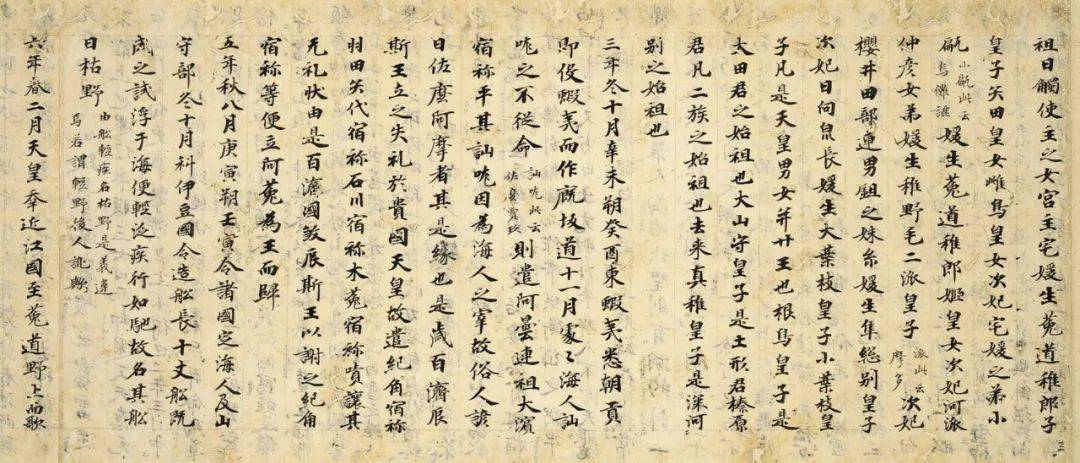 祖日觸使主之女宮主宅媛生菟道稚郎子
皇子矢田皇女雌鳥皇女次妃宅媛之弟小
甂小甂此云烏儺謎媛生菟道稚郎姬皇女次妃河派
仲彥女弟媛生稚野毛二派皇子派此云摩多次妃
櫻井田部連男鉏之妹糸媛生隼総別皇子
次妃日向泉長媛生大葉枝皇子小葉枝皇
子凡是天皇男女并廿王也根鳥皇子是
大田君之始祖也大山守皇子是土形君榛原
君凡二族之始祖也去来真稚皇子是深河
別之始祖也
三年冬十月辛未朔癸酉東蝦夷悉朝貢
即役蝦夷而作厩坂道十一月處々海人訕
哤之不從命訕哤此云佐麼賣玖則遣阿曇連祖大濱
宿祢平其訕哤因為海人之宰故俗人諺
曰佐麼阿摩者其是緣也是歲百濟辰
斯王立之失礼於貴國天皇故遣紀角宿祢
羽田矢代宿祢石川宿祢木菟宿祢嘖讓其
无礼狀由是百濟國煞辰斯王以謝之紀角
宿祢等便立阿菟為王而歸
五年秋八月庚寅朔壬寅令諸國定海人及山
守部冬十月科伊豆國令造舩長十丈舩既
成之試浮于海便輕泛疾行如馳故名其舩
曰枯野由舩輕疾名枯野是義違焉若謂輕野後人訛歟
六年春二月天皇幸近江國至菟道野上而歌